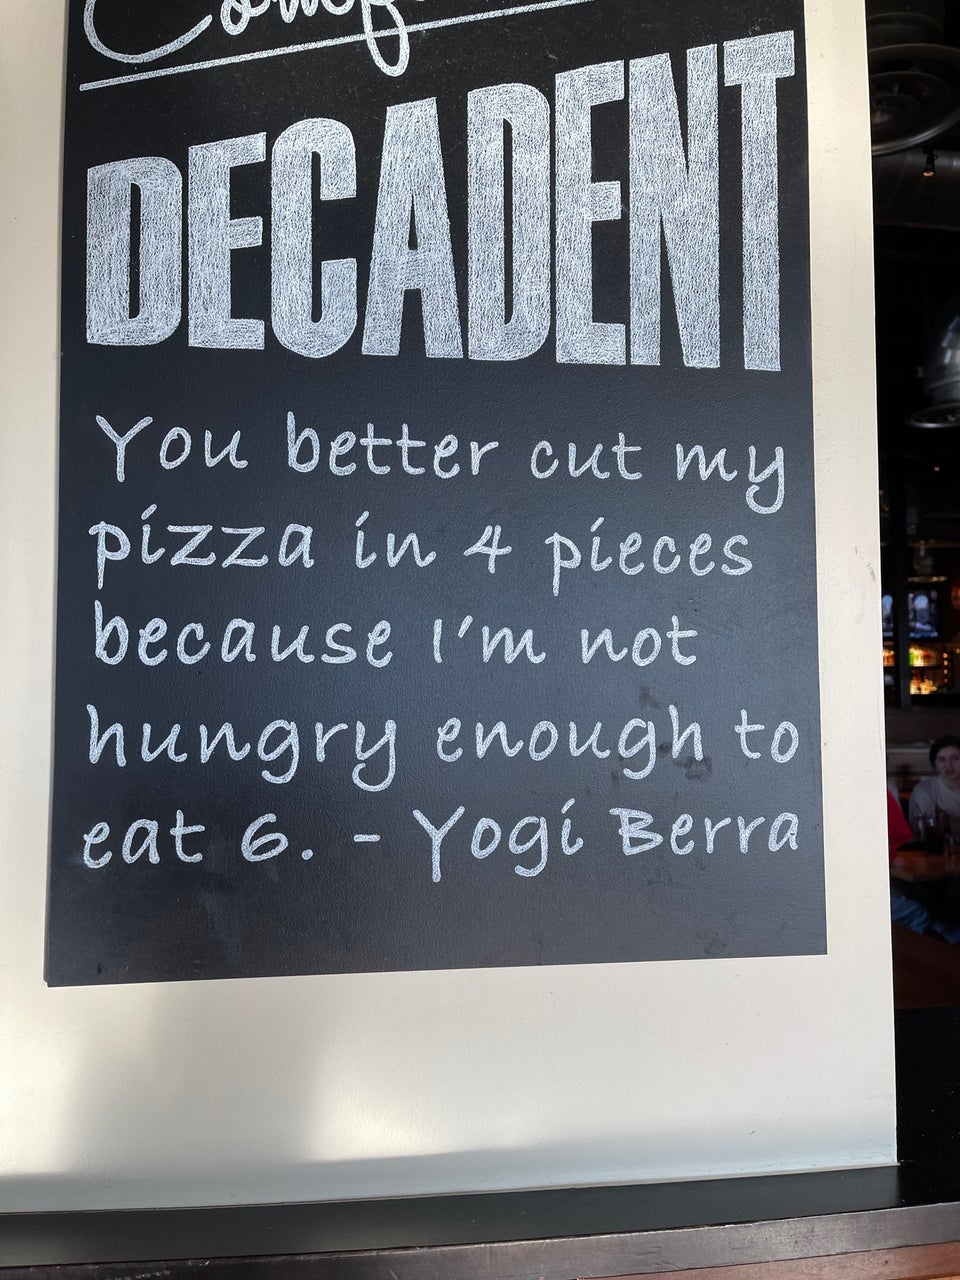 DECADENT
You better cut my
pizza in 4 pieces
because I'm not
hungry enough to
eat 6. - Yogi Berra